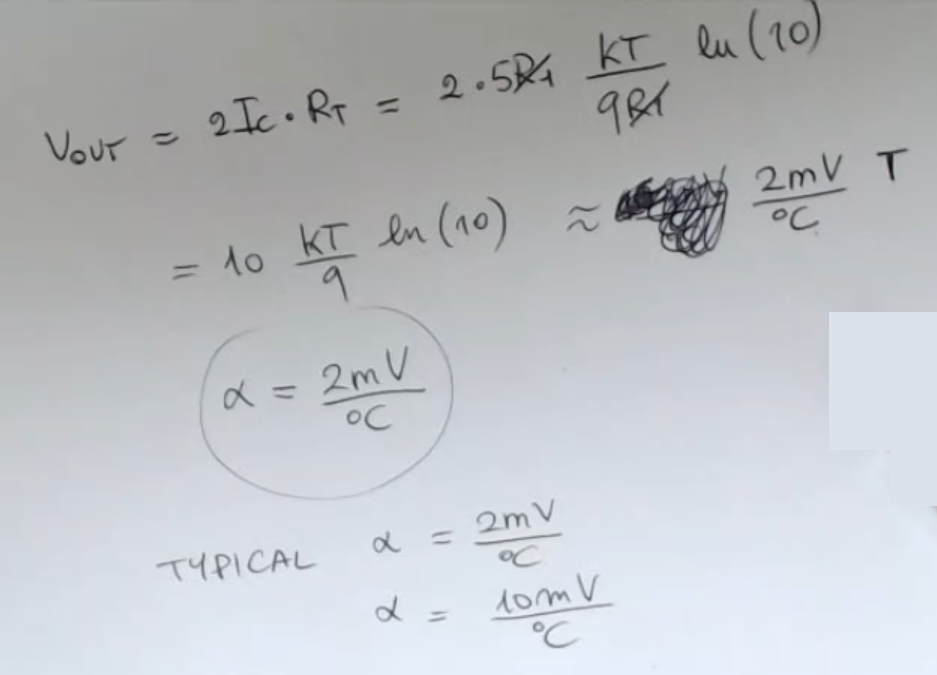 VOUT = 2Ic · RT = 2 · 5R1 kT/qR1 ln (10)
= 10 kT/q ln (10) ≈ 2mV/°C T
α = 2mV/°C
TYPICAL α = 2mV/°C
α = 10mV/°C